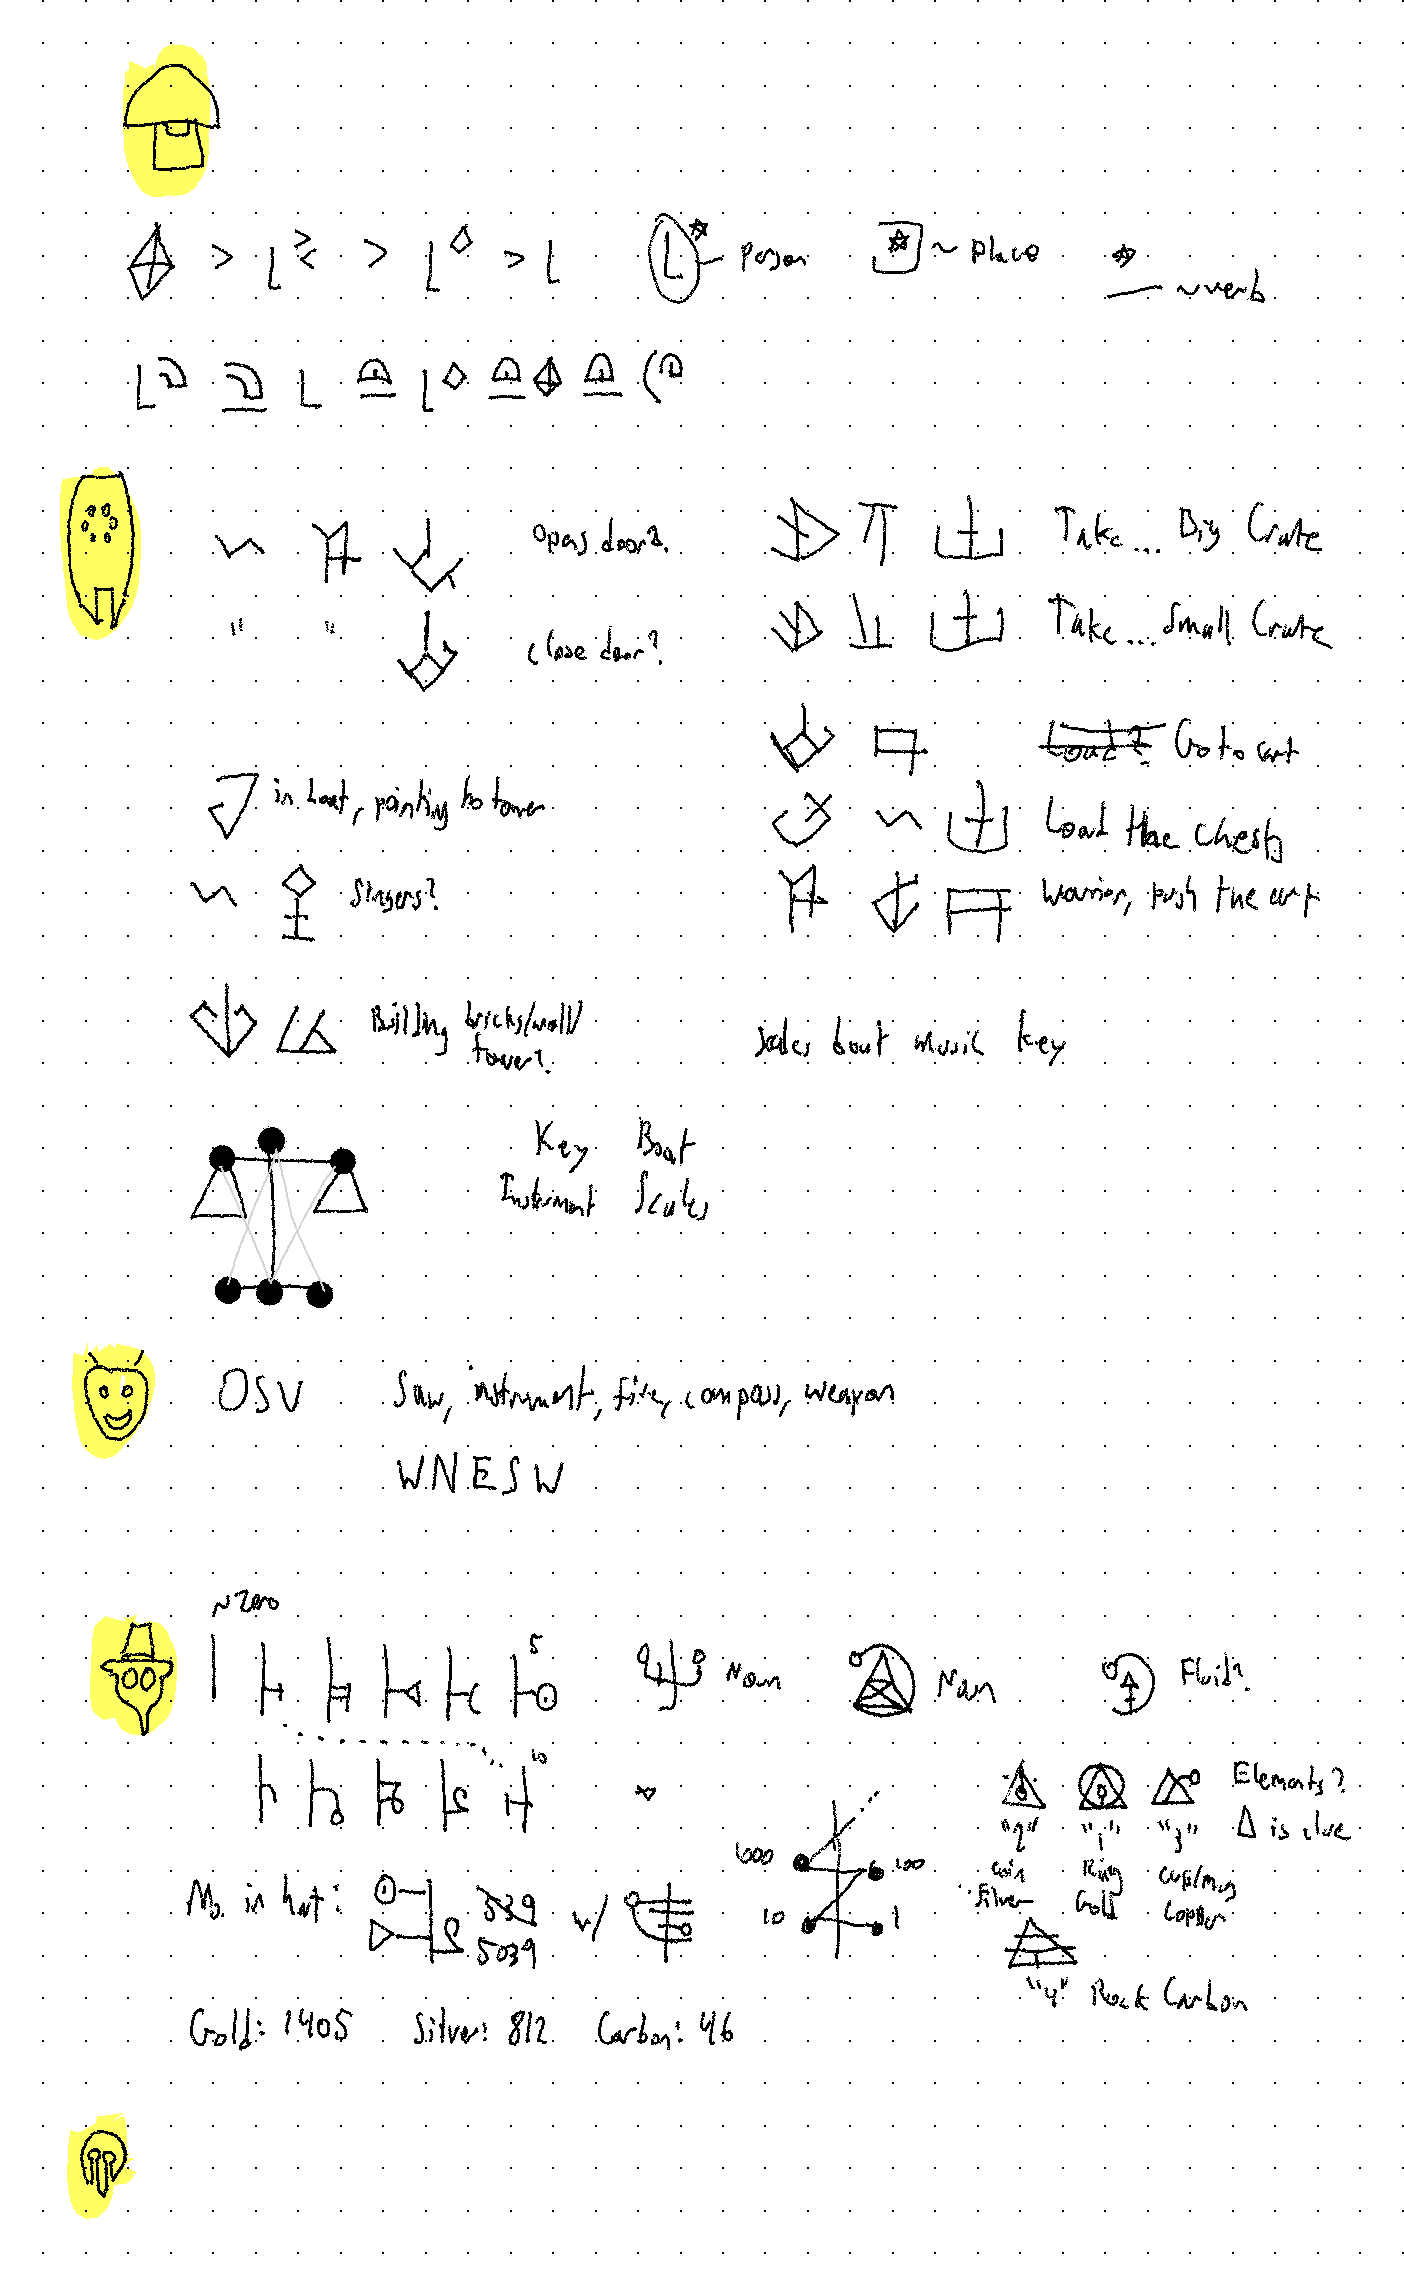 ~ person ~ place
~ verb
Opens door?
Take... Big Crate
" "
Close door?
Take... Small Crate
Load? Go to cart
in boat, pointing to tower
Load the chests
Singers?
Warrior, push the cart
Building bricks/wall/
tower?
Scales boat music key
Key Boat
Instrument Scales
OSV Saw, instrument, fire, compass, weapon
WNESW
~ Zero
5
Noun Man Fluid?
10
Elements?
"2" "1" "3" Δ is clue
1000 100
Coin Ring Cup/mug
Silver Gold Copper
10 1
No. in hat: 539 w/
5039
"4" Rock Carbon
Gold: 1405 Silver: 812 Carbon: 46